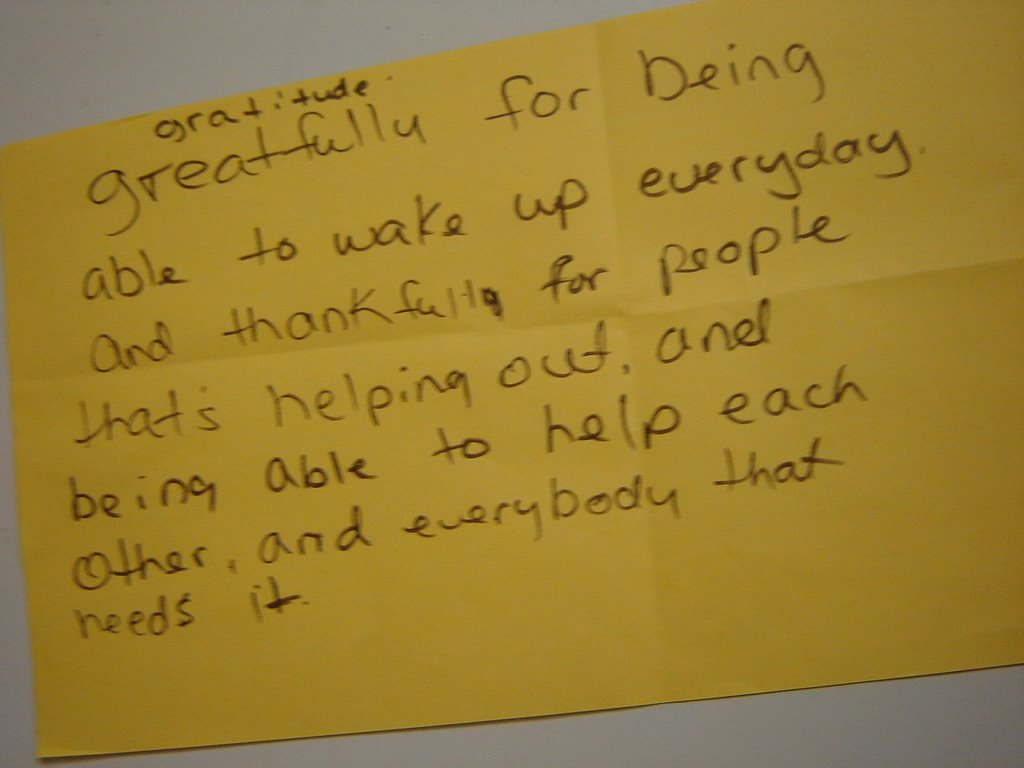 gratitude.
greatfully for being
able to wake up everyday.
and thankfully for people
that's helping out, and
being able to help each
other, and everybody that
needs it.